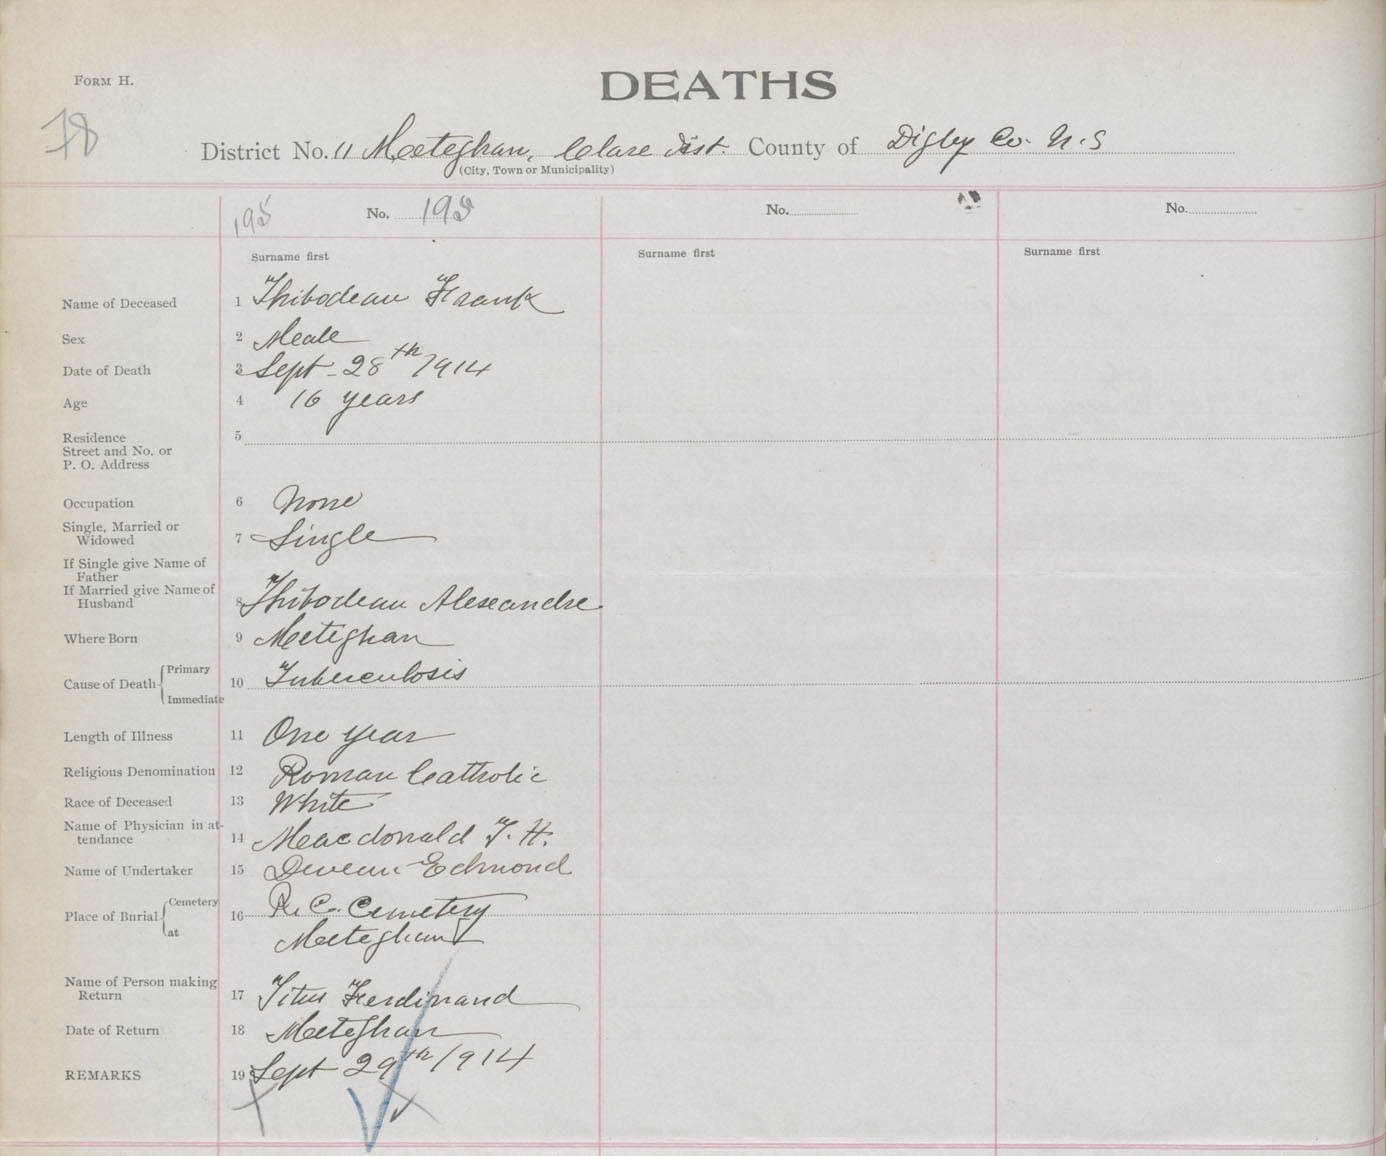 FORM H.
DEATHS
78
District No. 11 Meeteghan, Clare Dist. County of Digby Co. N.S
(City, Town or Municipality)
195 No. 195 No. No.
Surname first Surname first Surname first
Name of Deceased 1 Thibodeau Frank
Sex 2 Meale
Date of Death 3 Sept - 28th 1914
Age 4 16 years
Residence 5
Street and No. or
P. O. Address
Occupation 6 None
Single, Married or
Widowed 7 Single
If Single give Name of
Father
If Married give Name of
Husband 8 Thibodeau Alexandre
Where Born 9 Meeteghan
Cause of Death Primary
10 Tuberculosis
Immediate
Length of Illness 11 One year
Religious Denomination 12 Roman Catholic
Race of Deceased 13 White
Name of Physician in at-
tendance 14 Macdonald T. H.
Name of Undertaker 15 Deveau Edmond
Place of Burial Cemetery
16 R. C. Cemetery
at Meeteghan
Name of Person making
Return 17 Titus Ferdinand
Date of Return 18 Meeteghan
REMARKS 19 Sept 29th 1914